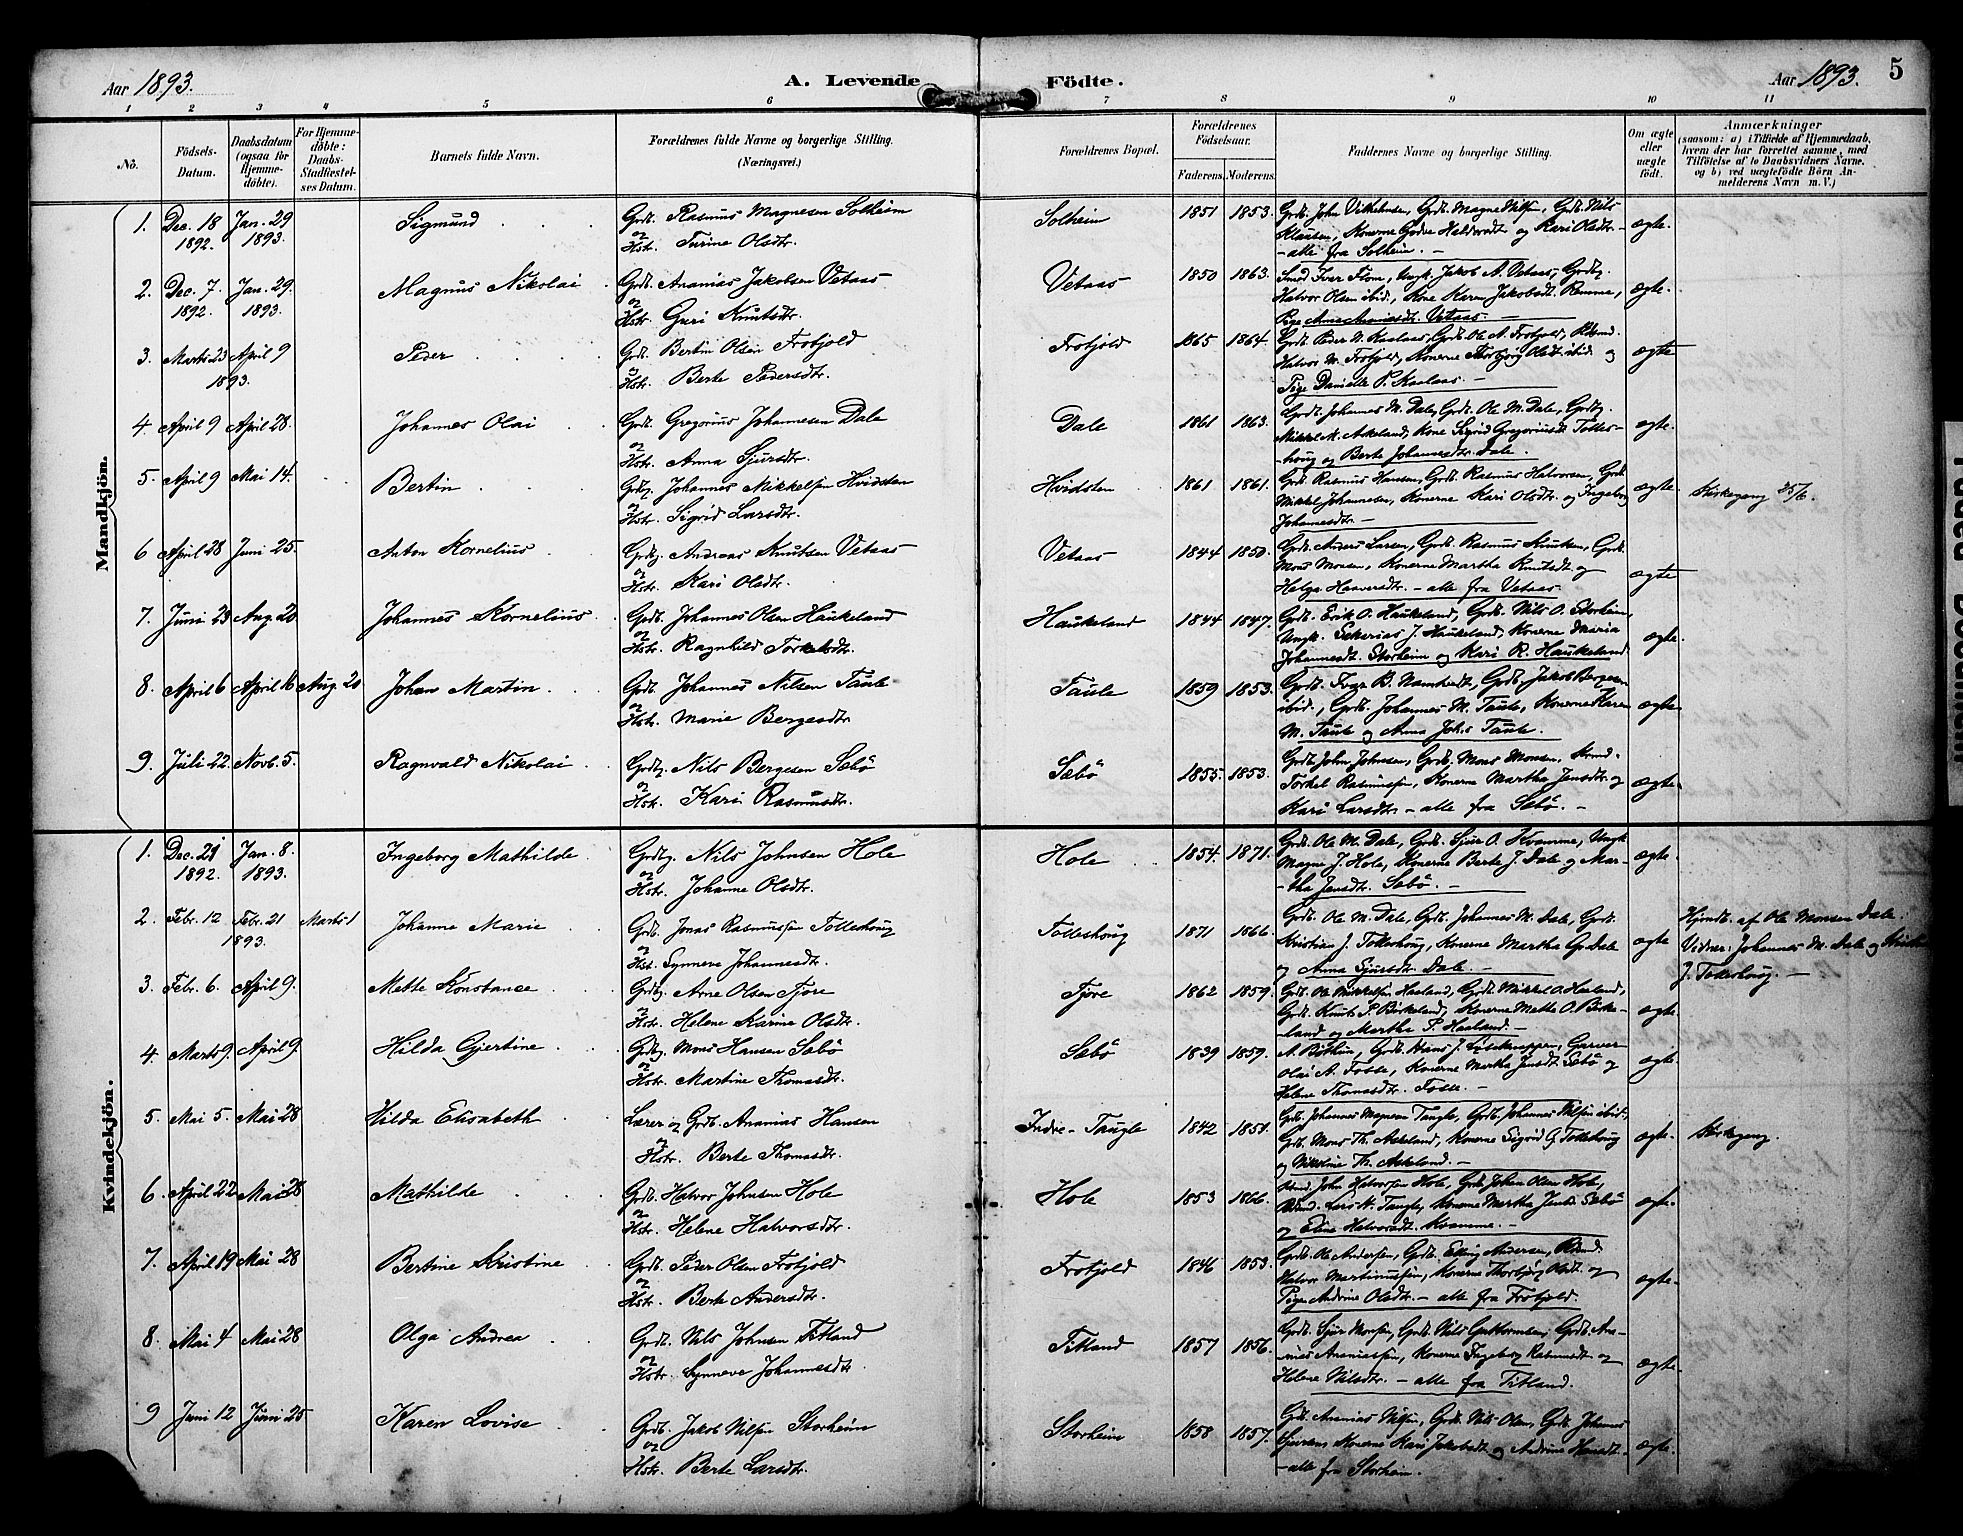 Aar 1893.
A. Levende Födte.
Aar 1893. 5
1 2 3 4 5 6 7 8 9 10 11
Nō.
Födsels-Datum.
Daabsdatum (ogsaa för Hjemme-döbte).
For Hjemme-döbte: Daabs-Stadfæstel-ses Datum.
Barnets fulde Navn.
Forældrenes fulde Navne og borgerlige Stilling. (Næringsvei.)
Forældrenes Bopæl.
Forældrenes Födselsaar.
Faderens. Moderens.
Faddernes Navne og borgerlige Stilling.
Om ægte eller uægte födt.
Anmærkninger
(saasom: a) i Tilfælde af Hjemmedaab, hvem der har forrettet samme, med Tilföielse af to Daabsvidners Navne, og b) ved uægtefödte Börn An-melderens Navn m.V.)
Mandkjön.
1. Dec. 18 1892. Jan. 29 1893. Sigmund Grdb. Rasmus Magnesen Solheim
og Hstr. Turine Olsdtr. Solheim 1851 1853.
Grdb. John Vilhelmsen, Grdb. Magne Nilsen, Grdb. Nils
Klausen, Konerne Haldorsdt og Kari Olsdtr. -
- alle fra Solheim. - ægte.
2. Dec. 7 1892. Jan. 29. 1893. Magnus Nikolai Grdb. Ananias Jakobsen Vetaas
og Hstr. Guri Knutsdtr. Vetaas 1850 1863.
Smed Iver Flom, Ungk. Jakob A. Vetaas, Grdbg.
Halvor Olsen ibid., Kone Karen Jakobsdt. Remme,
Pige Anna Ananiasdt. Vetaas. - ægte.
3. Marts 23 April 9 1893. Peder Grdb. Bertin Olsen Frotjold
og Hstr. Berte Pedersdtr. Frotjold 1865 1864.
Grdb. Peder N. Kaalaas, Grdb. Ole A. Frotjold,
Halvor M. Frotjold, Konerne Thorbjørg Olsdt. ibid. og
Pige Danielle P. Kaalaas. - ægte
4. April 9 April 28. Johannes Olai Grdb. Gregorius Johannesen Dale
og Hstr. Anna Sjursdtr. Dale 1861 1863.
Grdb. Johannes M. Dale, Grdb. Ole M. Dale, Grdbg.
Mikkel M. Askeland, Kone Sigrid Gregoriusdt. Tolles-
-houg og Berte Johannesdtr. Dale. ægte.
5. April 9 Mai 14. Bertin Grdbg. Johannes Mikkelsen Hvidsten
og Hstr. Sigrid Larsdtr. Hvidsten 1861 1861.
Grdb. Rasmus Hansen, Grdb. Rasmus Halvorsen, Grdb.
Mikkel Johannesen, Konerne Kari Olsdtr. og Ingeborg
Johannesdtr. - ægte. Kirkegang 25/6.
6 April 28 Juni 25. Anton Kornelius. Grdbg. Andreas Knutsen Vetaas
og Hstr. Kari Olsdtr. Vetaas 1844 1850.
Grdb. Anders Larsen, Grdb. Rasmus Knutsen, Grdb.
Mons Monsen, Konerne Martha Knutsdt. og
Helga Haaversdtr. - alle fra Vetaas. ægte
7. Juni 23 Aug 20. Johannes Kornelius. Grdb. Johannes Olsen Haukeland
og Hstr. Ragnhild Torkelsdtr. Haukeland 1844 1847.
Grdb. Erik O. Haukeland, Grdb. Nils O. Storheim,
Ungk. Sekerias J. Haukeland, Konerne Maria
Johannesdt. Storheim og Kari R. Haukeland. ægte.
8. April 6 April 16 Aug 20 Johan Martin. Grdb. Johannes Nilsen Taule
og Hstr. Marie Bergesdtr Taule 1859 1853.
Grdb. B. Namtvedt, Grdb. Jakob Bergesen
ibid., Grdb. Johannes M. Taule, Konerne Karen
M. Taule og Anna Johs Taule. ægte.
9. Juli 22. Novb. 5. Ragnvald Nikolai Grdbg. Nils Bergesen Sæbö
og Hstr. Kari Rasmusdtr. Sæbö 1855. 1853.
Grdb. John Johnsen, Grdb. Mons Monsen,
Torkel Rasmussen, Konerne Martha Jensdtr. og
Kari Larsdtr. - alle fra Sæbö. - ægte.
Kvindekjön.
1. Dec. 21 1892. Jan. 8. 1893. Ingeborg Mathilde Grdbg. Nils Johnsen Hole
og Hstr. Johanne Olsdtr. Hole 1854. 1871.
Grdb. Ole M. Dale, Grdb. Sjur O. Kvamme, Ungk
Magne J. Hole, Konerne Berte J. Dale og Mar-
-tha Jensdt. Sæbö. - ægte.
2. Febr. 12 Febr. 21 1893. Marts 1 Johanne Marie Grdb. Jonas Rasmussen Tolleshoug
og Hst. Synneve Johannesdtr. Tolleshoug 1871 1866.
Grdb. Ole M. Dale, Grdb. Johannes M. Dale, Grdb.
Kristian J. Tolleshoug, Konerne Martha Dale
og Anna Sjursdt. Dale. - ægte
Hjmdb. af Ole Monsen Dale.
Vidner: Johannes M. Dale og
J. Tolleshoug. -
3. Febr. 6. April 9. Mette Konstance Grdbg. Arne Olsen Fjore
og Hstr. Helene Karine Olsdtr. Fjore 1862 1859.
Grdb. Ole Mikkelsen Haaland, Grdb. Mikkel O. Haaland,
Grdb. Knut P. Birkeland, Konerne Mette O. Birke-
land og Martha P. Haaland. - ægte.
4. Marts 9. April 9. Hilda Gjertine Grdbg. Mons Hansen Sæbö
og Hstr. Martine Thomasdtr. Sæbö 1839 1859.
A. Böthun, Grdb. Hans J. Garver
Olai A. Fosse, Konerne Martha Jensdt. Sæbö og
Helene Thomasdtr. Fosse. - ægte.
5. Mai 5. Mai 28 Hilda Elisabeth Lærer og Grdb. Ananias Hansen
og Hstr. Berte Thomasdtr. Indre-Taugle 1842 1851.
Grdb. Johannes Taugle, Grdb. Johannes Nilsen ibid.
Grdb. Mons Th. Askeland, Konerne Sigrid G. Tolleshoug
og Nikoline Th. Askeland. - ægte. Kirkegang.
6. April 22 Mai 28 Mathilde Grdb. Halvor Johnsen Hole
og Hstr. Helene Halvorsdtr. Hole 1853 1866.
John Halvorsen Hole, Grdb. Johan Olsen Hole,
Lars N. Taugle, Konerne Martha Jensdt. Sæbö
og Eline Halvorsdt. Kvamme. - ægte.
7. April 19 Mai 28 Bertine Kristine Grdb. Peder Olsen Frotjold
og Hstr. Berte Andersdtr. Frotjold 1846 1853.
Grdb. Ole Andersen, Grdb. Elling Andersen,
Halvor Martinussen, Konerne Thorbjørg Olsdt. og
Pige Andrine Olsdtr. - alle fra Frotjold. ægte.
8. Mai 4 Mai 28 Olga Andrea Grdb. Nils Johnsen Titland
og Hstr. Synneve Johannesdtr. Titland 1857 1856.
Grdb. Sjur Monsen, Grdb. Nils Guttormsen, Grdb. Ana-
nias Ananiassen, Konerne Ingeborg Rasmusdt. og
Helene Nilsdtr. - alle fra Titland. ægte.
9 Juni 12 Juni 25 Karen Lovise Grdb. Jakob Nilsen Storheim
og Hstr. Berte Larsdtr. Storheim 1858 1857.
Grdb. Ananias Nilsen, Grdb. Nils Olsen, Grdb. Johannes
Konerne Kari Jakobsdt. og Andrine Hansdt. -
- alle fra Storheim. ægte.